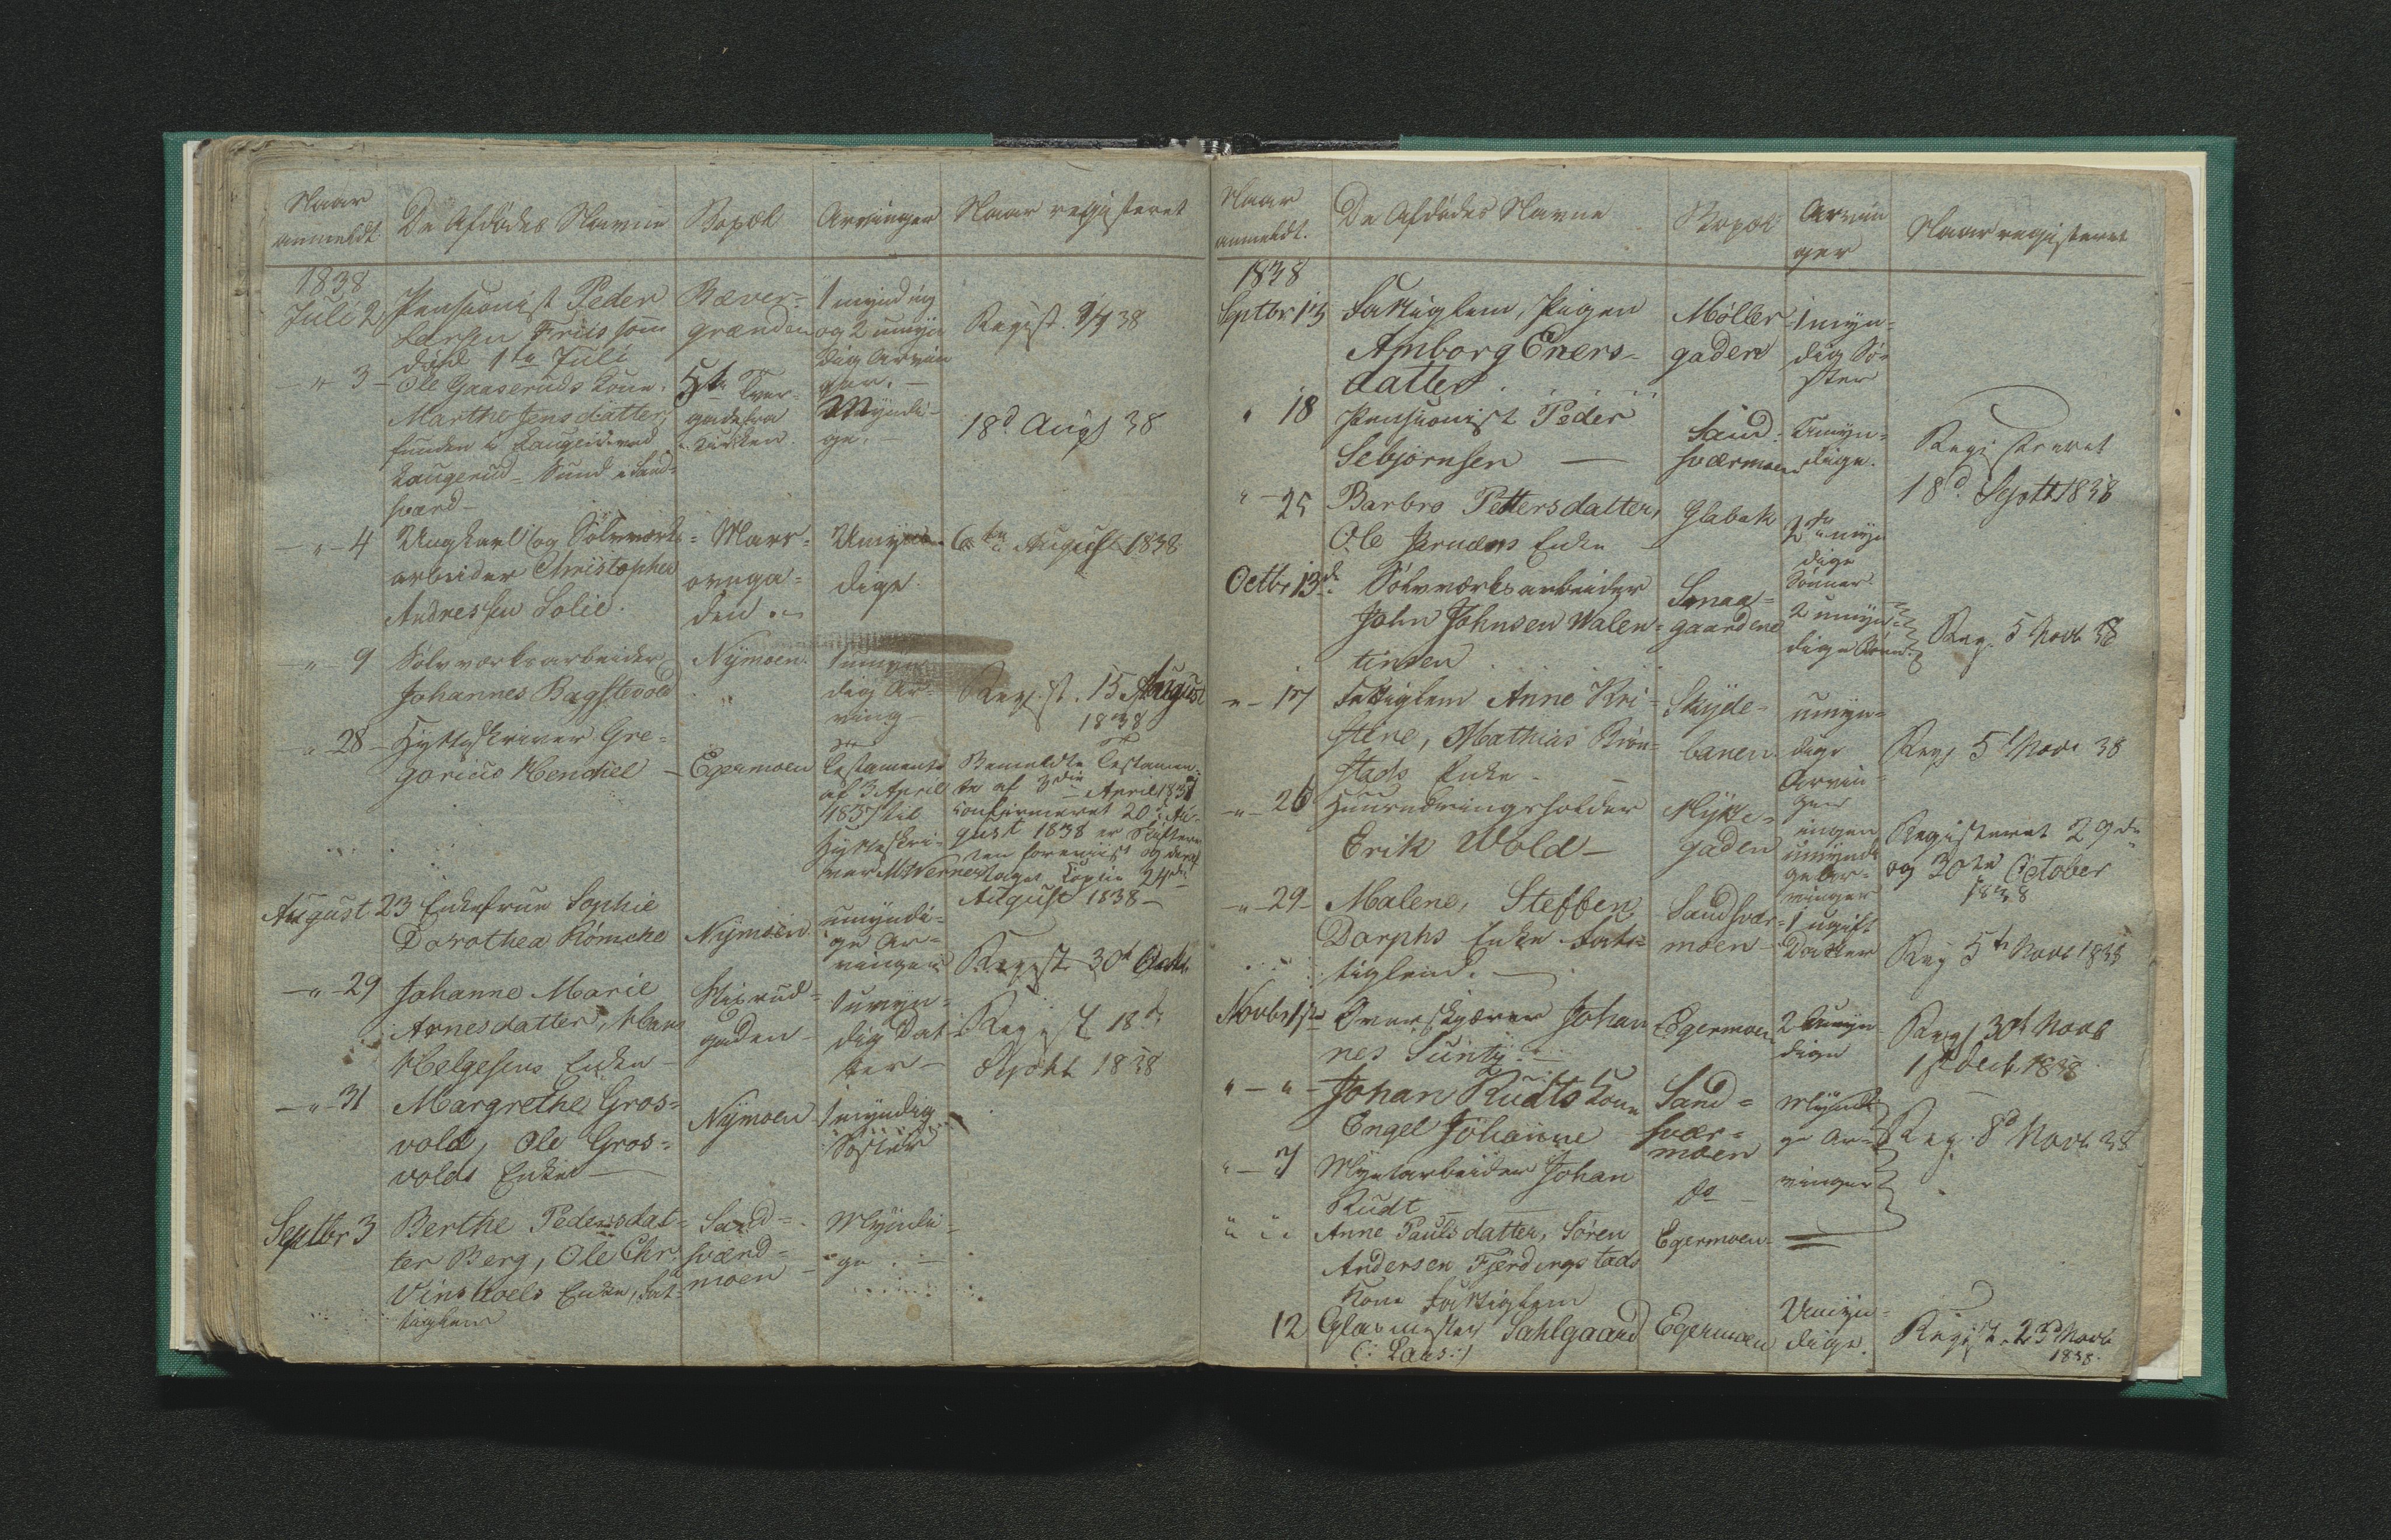 Naar
anmeldt.
De Afdødes Navne
Bopæl
Arvinger
Naar registeret
1838
Juli 2
Pensionist Peder
Larsen Friis som
døde 1te Juli
Bæver-
grænden
1 myndig
og 2 umyn
dig Arvin
ger. —
Regist. 9/7 38
— " 3 —
Ole Gaaseruds Kone
Marthe Jensdatter,
funden i Laugen ved
Laugerud - Sund i Sand-
sværd —
5te Tver-
gade fra
Kirken.
Myndi-
ge. —
18d Augs 38
— " — 4
Ungkarl og Sølvværks-
arbeider Christopher
Andressen Solie.
Marr-
overga-
den
Umyn-
dige
6te August 1838
— " — 9
Sølvværksarbeider
Johannes Bagstevold
Nymoen.
"
1 umyn
dig Ar-
ving —
Regist. 15 August
1838
— " 28 —
Hytteskriver Gre-
gorius Henchel —
Egermoen
Testamente
af 3 April
1837 til
Hytteskri-
ver M. Werner
Bemeldte Testamen-
te af 3die April 1837
confirmeret 20d Au-
gust 1838 er Skifteret
ten foreviist og deraf
taget Copie 24de
August 1838 —
August 23
Enkefrue Sophie
Dorothea Kömche
Nymoen
umyndi-
ge Ar-
vinger
Regist. 30d Octb.
— " — 29
Johanne Marie
Arnesdatter, Hans
Helgesens Enke —
Skixrud-
gaden —
1 umyn-
dig Dat
ter —
Regist 18de
Septbr 1838
— " — 31
Margrethe Gros-
vold, Ole Gros-
volds Enke —
Nymoen
1 myndig
Søster
Septbr 3
Berthe Pedersdat-
ter Berg, Ole Chr.
Vinskoels Enke, Fat-
tiglem
Sand-
sværd-
moen —
Myndi-
ge. —
Naar
anmeldt.
De Afdødes Navne
Bopæl
Arvin
ger
Naar registeret
1838
Septbr 13
Fattiglem, Pigen
Amborg Eners-
datter
Møller
gaden
1 myn-
dig Sø-
ster
" 18
Pensionist Peder
Sebjørnsen —
Sand-
sværmoen
Umyn-
dige.
Registreret
18d Septb 1838
" — 25
Barbro Pettersdatter,
Ole Enke —
Glabak
2de umyn
dige
Sønner
Octbr 13de
Sølvværksarbeider
John Johnsen Walen-
tinsen
Smaa-
gaardene
2 umyn-
dige Børn
Reg. 5 Novb 38
— " — 17
Fattiglem Anne Kri-
stine, Mathias Brøn-
stads Enke —
Skyde-
banen
umyn-
dige
Arvin-
ger
Regs 5t Novr 38
— " — 26
Erik Wold —
Hytte-
gaden
ingen
umyndi
ge Ar-
vinger
Registeret 29de
og 30te October
1838
— " — 29 —
Malene, Steffen
Dorphs Enke Fat-
tiglem. —
Sandsvær-
moen —
1 ugift
Datter
Reg 5te Novb 1838
Novbr 1ste
Overskjærer Johan
nes Suntz —
Egermoen
2 Umyn
dige
Regs 30te Novb
1ste Decb. 1838
" — " —
Johan Rudts Kone
Engel Johanne
Sand-
svær-
moen
Myndi
ge Ar-
vinger
Reg. 8d Novb. 38
" — 7
Myntarbeider Johan
Rudt — —
do —
" "
Anne Paulsdatter, Søren
Andersen Fjerdingstads
Kone Fattiglem
Egermoen
12
Glasmester Sahlgaard
(: Lars :)
Egermoen
Umyn-
dige.
Regist. 23d Novb
1838.